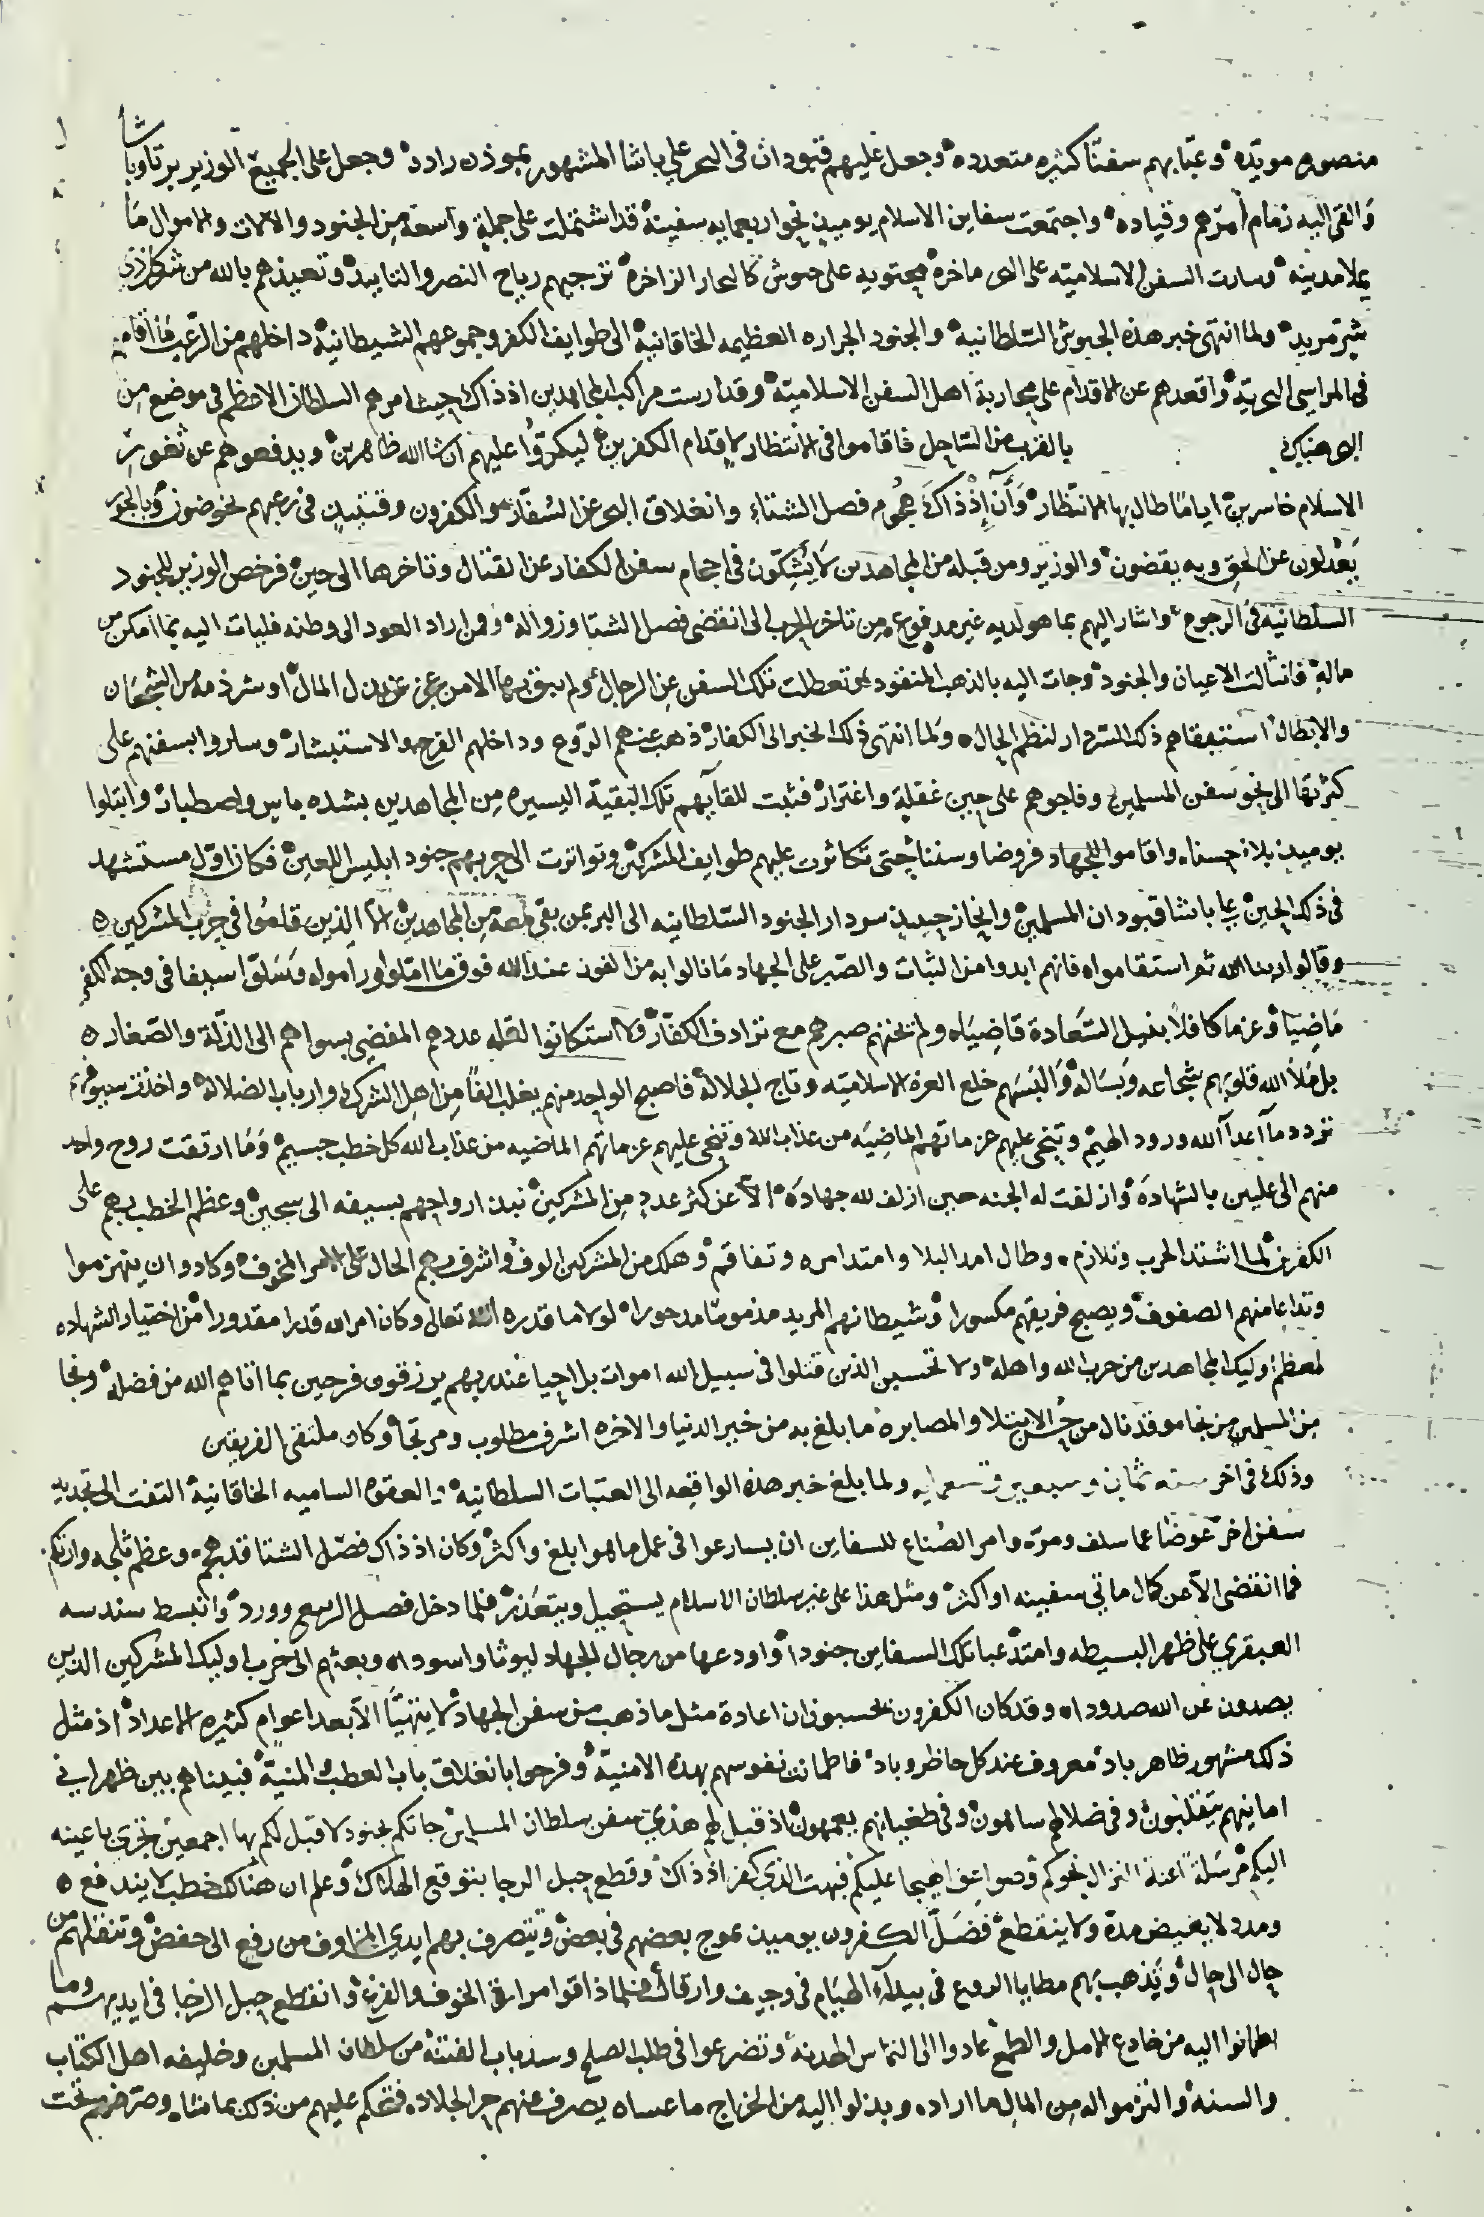 منصوره مويده وعبا بهم سفنا كثيره متعدده وجعل عليهم قبودان في البحر علي باشا المشهور بموذن زاده وجعل على الجميع الوزير برتاو باشا
والقى اليه زمام امرهم وقياده واجتمعت سفاين الاسلام يوميذ نحو اربعمايه سفينة قد اشتملت على جملة واسعة من الجنود والالات والاموال ما
يملا مدينه وسارت السفن الاسلاميه على البحر ماخرة محتويه على جيوش كالبحار الزاخرة تزجيهم رياح النصر والتاييد وتعيذهم بالله من شر كل ذي
شر مريد ولما انتهى خبر هذه الجيوش السلطانية والجنود الجراره العظيمه الخاقانية الى طوايف الكفر وجموعهم الشيطانية داخلهم من الرعب ما اقامهم
في المراسي البحرية واقعدهم عن الاقدام على محاربة اهل السفن الاسلامية وقد ارست مراكب المجاهدين اذ ذاك حيث امرهم السلطان الاعظم في موضع من
البحر هنالك بالقرب من الساحل فاقاموا في الانتظار لاقدام الكفرين ليكروا عليهم ان شا الله ظاهرين ويدفعوهم عن ثغور
الاسلام خاسرين اياما طال بها الانتظار وآن اذ ذاك هجوم فصل الشتاء وانغلاق البحر عن السفار والكفرون وقتيذ في رعبهم يخوضون وبالجور
يعدلون عن الحق وبه يقضون والوزير ومن قبله من المجاهدين لا يشكون في احجام سفن الكفار عن القتال وتاخرها الى حين فرخص الوزير للجنود
السلطانية في الرجوع واشار اليهم بما هو لديه غير مدفوع من تاخر الحرب الى انقضى فصل الشتا وزواله فمن اراد العود الى وطنه فليات اليه بما امكن من
ماله فانثالت الاعيان والجنود وجات اليه بالذهب المنقود وتعطلت تلك السفن عن الرجال ولم يبق بها الا من عجز عن بذل المال او شرذمة من الشجعان
والابطال استبقاهم ذلك السردار لنظم الحال ولما انتهى ذلك الخبر الى الكفار ذهب عنهم الروع وداخلهم الفرح والاستبشار وساروا بسفنهم على
كثرتها الى نحو سفن المسلمين وفاجوهم على حين غفلة واغترار فثبت للقآيهم تلك البقية اليسيره من المجاهدين بشده باس واصطبار وابتلوا
يوميذ بلاء حسنا واقاموا للجهاد فروضا وسننا حتى تكاثرت عليهم طوايف المشركين وتواترت الى حربهم جنود ابليس اللعين فكان اول مستشهد
في ذلك الحين علي باشا قبودان المسلمين وانحاز حينيذ سردار الجنود السلطانيه الى البر بمن بقي معه من المجاهدين اما الذين قلعوا في حرب المشركين
وقالوا ربنا الله ثم استقاموا فانهم ابدوا من الثبات والصبر على الجهاد ما نالوا به من الفوز عند الله فوق ما املوا وراموا وسلوا سيفا في وجه الكفر
ماضيا وعزما كافلا بنيل السعادة قاضيا ولم يخنهم صبرهم مع ترادف الكفار ولا استكانوا لقله عددهم المفضي بسواهم الى الذلة والصغار
بل ملا الله قلوبهم شجاعه وبساله والبسهم خلع العزه الاسلاميه وتاج الجلالة فاصبح الواحد منهم يغلب الفا من اهل الشرك وارباب الضلالة واخذت سيوفهم
ترد دما آعدآ الله ورود الهيم وتنحى عليهم عزماتهم الماضيه من عذاب الله وتنحى عليهم عزماتهم الماضيه من عذاب الله كل خطب جسيم وما ارتقت روح واحد
منهم الى عليين بالشهادة وازلفت له الجنه حين ازلف لله جهاده الا عن كثر عدد من المشركين نبذ ارواحهم بسيفه الى سجين وعظم الخطب بهم على
الكفرين لما اشتد الحرب وتلازم وطال امد البلا وامتد امره وتفاقم وهلك من المشركين الوف واشرف بهم الحال على الامر المخوف وكادو ان ينهزموا
وتداعا منهم الصفوف ويصبح فريقهم مكسورا وشيطانهم المريد مذموما مدحورا لولا ما قدره الله تعالى وكان امر الله قدرا مقدورا من اختيار الشهاده
لمعظم اوليك المجاهدين من حزب الله واهله ولا تحسبن الذين قتلوا في سبيل الله اموات بل احيا عند ربهم يرزقون فرحين بما اتاهم الله من فضله ونجا
من المسلمين من نجا وقد نال من حسن الابتلا والمصابره ما بلغ به من خير الدنيا والاخره اشرف مطلوب ومرتجا وكان ملتقى الفريقين
وذلك في اخر سنه ثمان وسبعين وتسعمايه ولما بلغ خبر هذه الواقعه الى العتبات السلطانيه والعقوه الساميه الخاقانية التفت الى تجديد
سفن اخر عوضا عما سلف ومر وامر الصناع للسفاين ان يسارعوا في عمل ما هو ابلغ واكثر وكان اذ ذاك فصل الشتا قد هجم وعظم ثلجه وارتكم
فما انقضى الا عن كمال ماتي سفينه او اكثر ومثل هذا على غير سلطان الاسلام يستحيل ويتعذر فلما دخل فصل الربيع وورد وانبسط سندسه
العبقري على ظهر البسيطه وامتد عبا تلك السفاين جنودا واودعها من رجال الجهاد ليوثا واسودا وبعثهم الى حرب اوليك المشركين الذين
يصدون عن الله صدودا وقد كان الكفرون يحسبون ان اعادة مثل ما ذهب من سفن الجهاد لا يتهيا الا بعد اعوام كثيره الاعداد اذ مثل
ذلك مشهور ظاهر باد معروف عند كل حاظر وباد فاطمانت نفوسهم بهذه الامنية وفرحوا بانغلاق باب العطب والمنية فبيناهم بين ظهراني
امانيهم يتقلبون وفي ضلالهم سامهون وفي طغيانهم يعمهون اذ قيل لهم هذي سفن سلطان المسلمين جاتكم بجنود لا قبل لكم بها اجمعين تجري باعينه
اليكم مرسلة اعنة النزال نحوكم وصواعق الهيجا عليكم فبهت الذي كفر اذ ذاك وقطع حبل الرجا بتوقع الهلاك وعلم ان هنالك خطب لا يندفع
ومدد لا يغيض مده ولا ينقطع فضل الكفرون يوميذ يموج بعضهم في بعض وتتصرف بهم ايدي المخاوف من رفع الى خفض وتنقلهم من
حال الى حال وتذهب بهم مطايا الروع في بيدآء الهيام في وجيف وارقال فلما ذاقوا مرارة الخوف والفزع وانقطع حبل الرجا في ايديهم وما
اطمانوا اليه من خادع الامل والطمع عادوا الى التماس الهدنه وتضرعوا في طلب الصلح وسد باب الفتنة من سلطان المسلمين وخليفه اهل الكتاب
والسنه والتزموا له من المال ما اراده وبذلوا اليه من الخراج ما عساه يصرف عنهم حر الجلاد فتحكم عليهم من ذلك بما شاء وصرفهم تحت